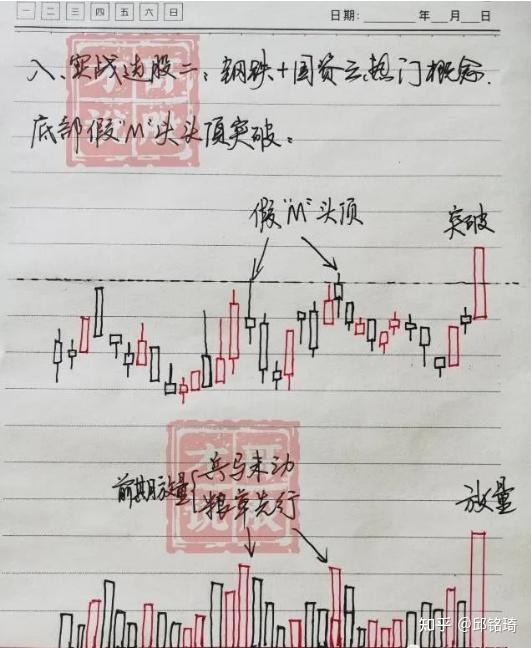 一 二 三 四 五 六 日 日期: 年 月 日
八、实战选股二:钢铁+国资云热门概念.
底部假"M"头头顶突破:
假"M"头顶
突破
前期放量
兵马未动
粮草先行
放量
知乎 @邱铭琦